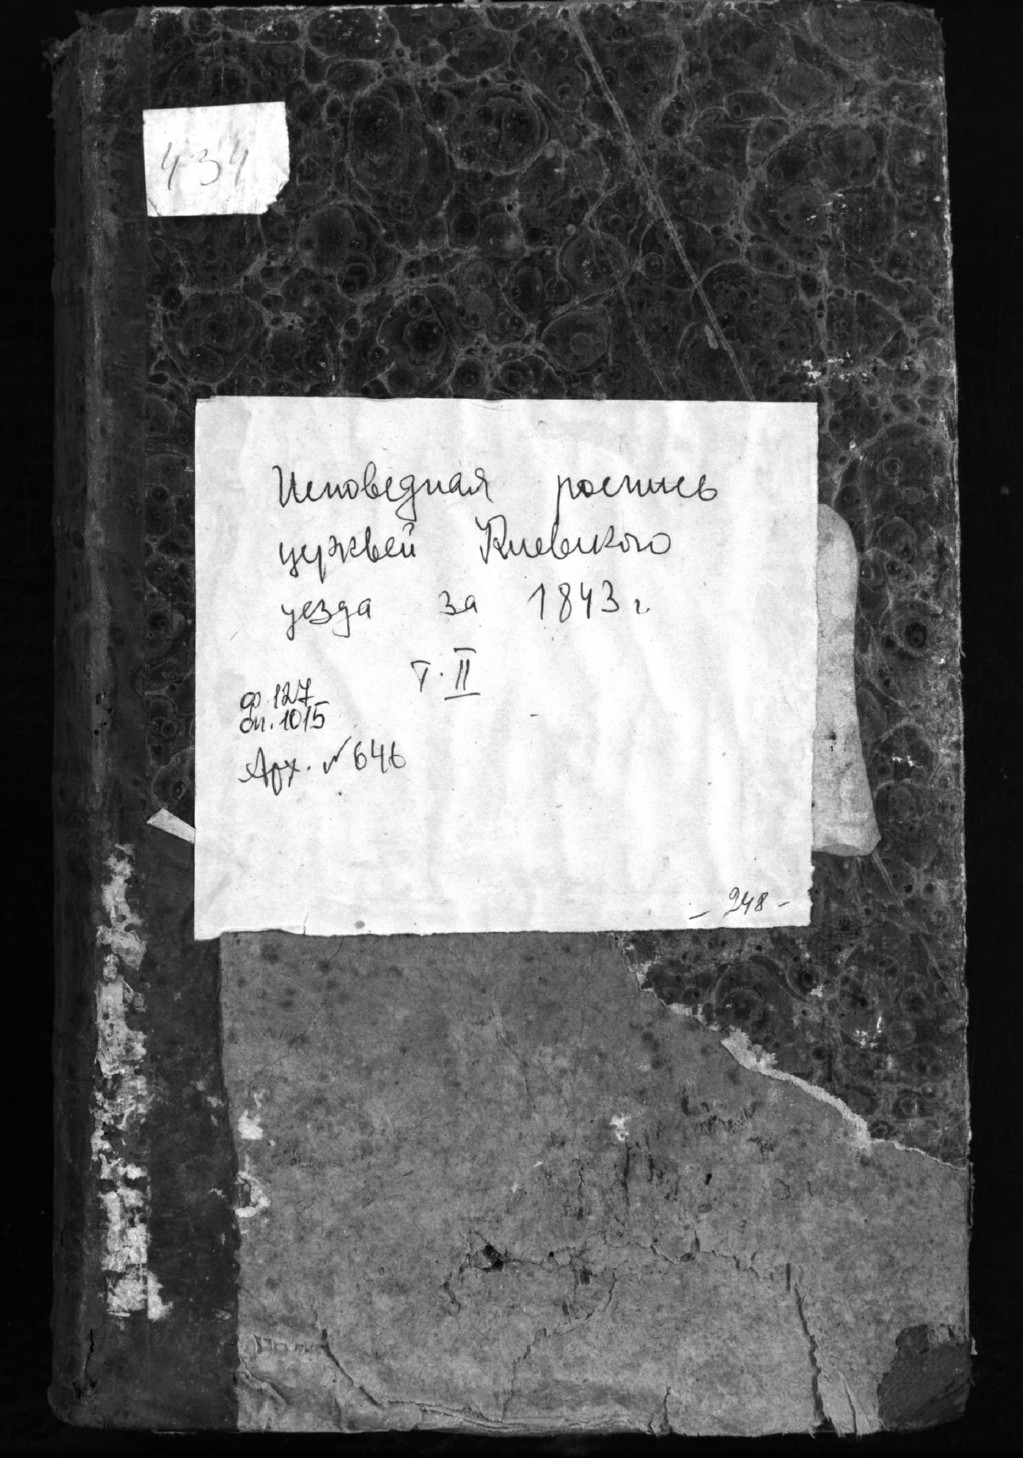 434
Исповедная роспись
церквей Киевского
уезда за 1843 г.
Т. II
ф. 127
оп. 1015
Арх. № 646
- 248 -